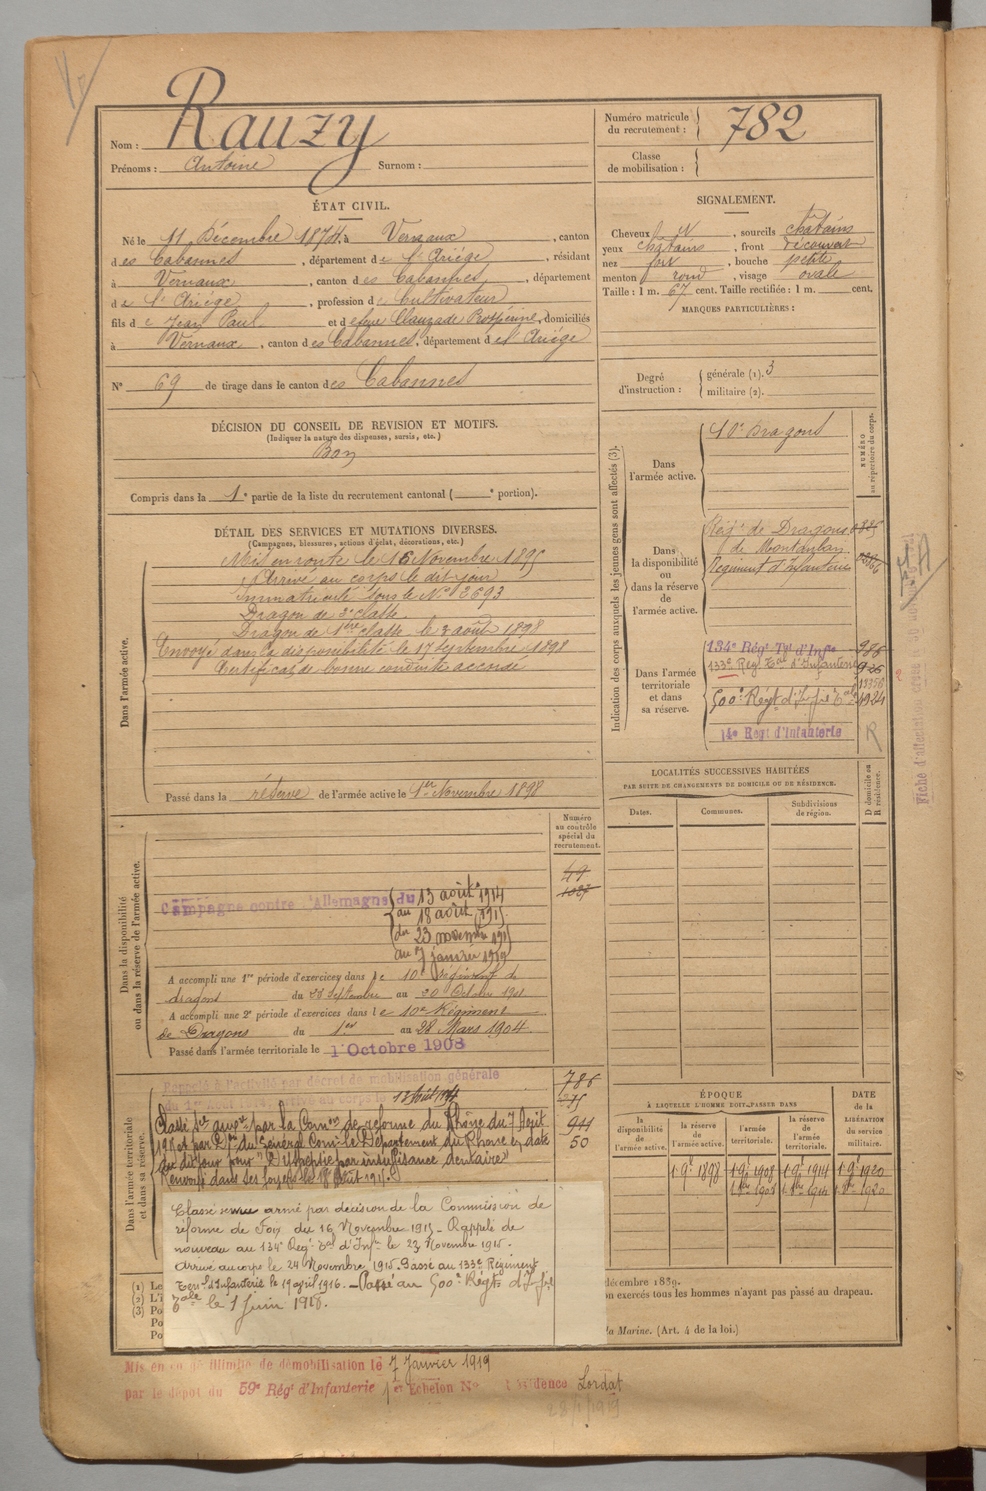 Nom : Rauzy
Prénoms : Antoine Surnom :
Numéro matricule du recrutement : 782
Classe de mobilisation :
ÉTAT CIVIL.
Né le 11 Décembre 1874, à Vernaux, canton
des Cabannes, département de l'Ariége, résidant
à Vernaux, canton des Cabannes, département
de l'Ariége, profession de Cultivateur
fils de Jean Paul et de feue Clauzade Prospérine, domiciliés
à Vernaux, canton des Cabannes, département de l'Ariége
N° 69 de tirage dans le canton des Cabannes
SIGNALEMENT.
Cheveux et N, sourcils chatains
yeux chatains, front découvert
nez fort, bouche petite
menton rond, visage ovale
Taille : 1 m. 67 cent. Taille rectifiée : 1 m. cent.
MARQUES PARTICULIÈRES :
Degré d'instruction : générale (1). 3
militaire (2).
DÉCISION DU CONSEIL DE REVISION ET MOTIFS.
(Indiquer la nature des dispenses, sursis, etc.)
Bon
Compris dans la 1e partie de la liste du recrutement cantonal ( e portion).
DÉTAIL DES SERVICES ET MUTATIONS DIVERSES.
(Campagnes, blessures, actions d'éclat, décorations, etc.)
Dans l'armée active.
Mis en route le 16 Novembre 1895
Arrivé au corps le dit jour
Immatriculé sous le N° 2693
Dragon de 2e classe
Dragon de 1ère classe le 3 août 1898
Envoyé dans la disponibilité le 17 septembre 1898
Certificat de bonne conduite accordé
Passé dans la réserve de l'armée active le 1er Novembre 1898
Indication des corps auxquels les jeunes gens sont affectés (3).
NUMÉRO au répertoire du corps.
Dans l'armée active.
10e Dragons
Dans la disponibilité ou dans la réserve de l'armée active.
Régt de Dragons
de Montauban
Régiment d'Infanterie
Dans l'armée territoriale et dans sa réserve.
134e Régt Tal d'Infie
133e Reg. Tal d'Infanterie
500e Régt d'Infie Tale
14e Régt d'Infanterie
13356
1924
R
LOCALITÉS SUCCESSIVES HABITÉES
PAR SUITE DE CHANGEMENTS DE DOMICILE OU DE RÉSIDENCE.
Dates. Communes. Subdivisions de région. D domicile ou R résidence.
Dans la disponibilité ou dans la réserve de l'armée active.
Numéro au contrôle spécial du recrutement.
49
Campagne contre l'Allemagne du 13 août 1914
au 18 août 1915
du 23 novembre 1915
au 7 janvier 1919
A accompli une 1re période d'exercices dans le 10e régiment de
dragons du 23 septembre au 20 Octobre 1901
A accompli une 2e période d'exercices dans le 10e Régiment
de Dragons du 1er au 28 Mars 1904.
Passé dans l'armée territoriale le 1 Octobre 1908
Dans l'armée territoriale et dans sa réserve.
Rappelé à l'activité par décret de mobilisation générale
du 1er Août 1914, arrivé au corps le 13 Août 1914
786
944
50
Classé Sce auxre par la Comon de réforme du Rhône du 7 Août
1915 et par Don du Général Comt le Département du Rhone en date
du dit jour pour "Dyspepsie par insuffisance dentaire"
Renvoyé dans ses foyers le 18 Août 1915.
Classé service armé par décision de la Commission de
réforme de Foix du 16 Novembre 1915 - Rappelé de
nouveau au 134e Reg. Tal d'Infie le 23 Novembre 1915.
Arrivé au corps le 24 Novembre 1915. Passé au 133e Régiment
Terral d'Infanterie le 19 avril 1916. - Passé au 500e Régt d'Infie
Tale le 1 Juin 1918.
ÉPOQUE
À LAQUELLE L'HOMME DOIT PASSER DANS
la disponibilité de l'armée active. la réserve de l'armée active. l'armée territoriale. la réserve de l'armée territoriale.
DATE de la LIBÉRATION du service militaire.
1 9e 1898 1 9e 1908 1 9e 1914 1 9e 1920
1 8bre 1908 1 8bre 1914 1 8bre 1920
(1) Le
(2) L'i
(3) Po
Po
Po
décembre 1889.
on exercés tous les hommes n'ayant pas passé au drapeau.
la Marine. (Art. 4 de la loi.)
Mis en congé illimité de démobilisation le 7 Janvier 1919
par le dépôt du 59e Régt d'Infanterie 1er Echelon N° Résidence Lordat
28/1/1919